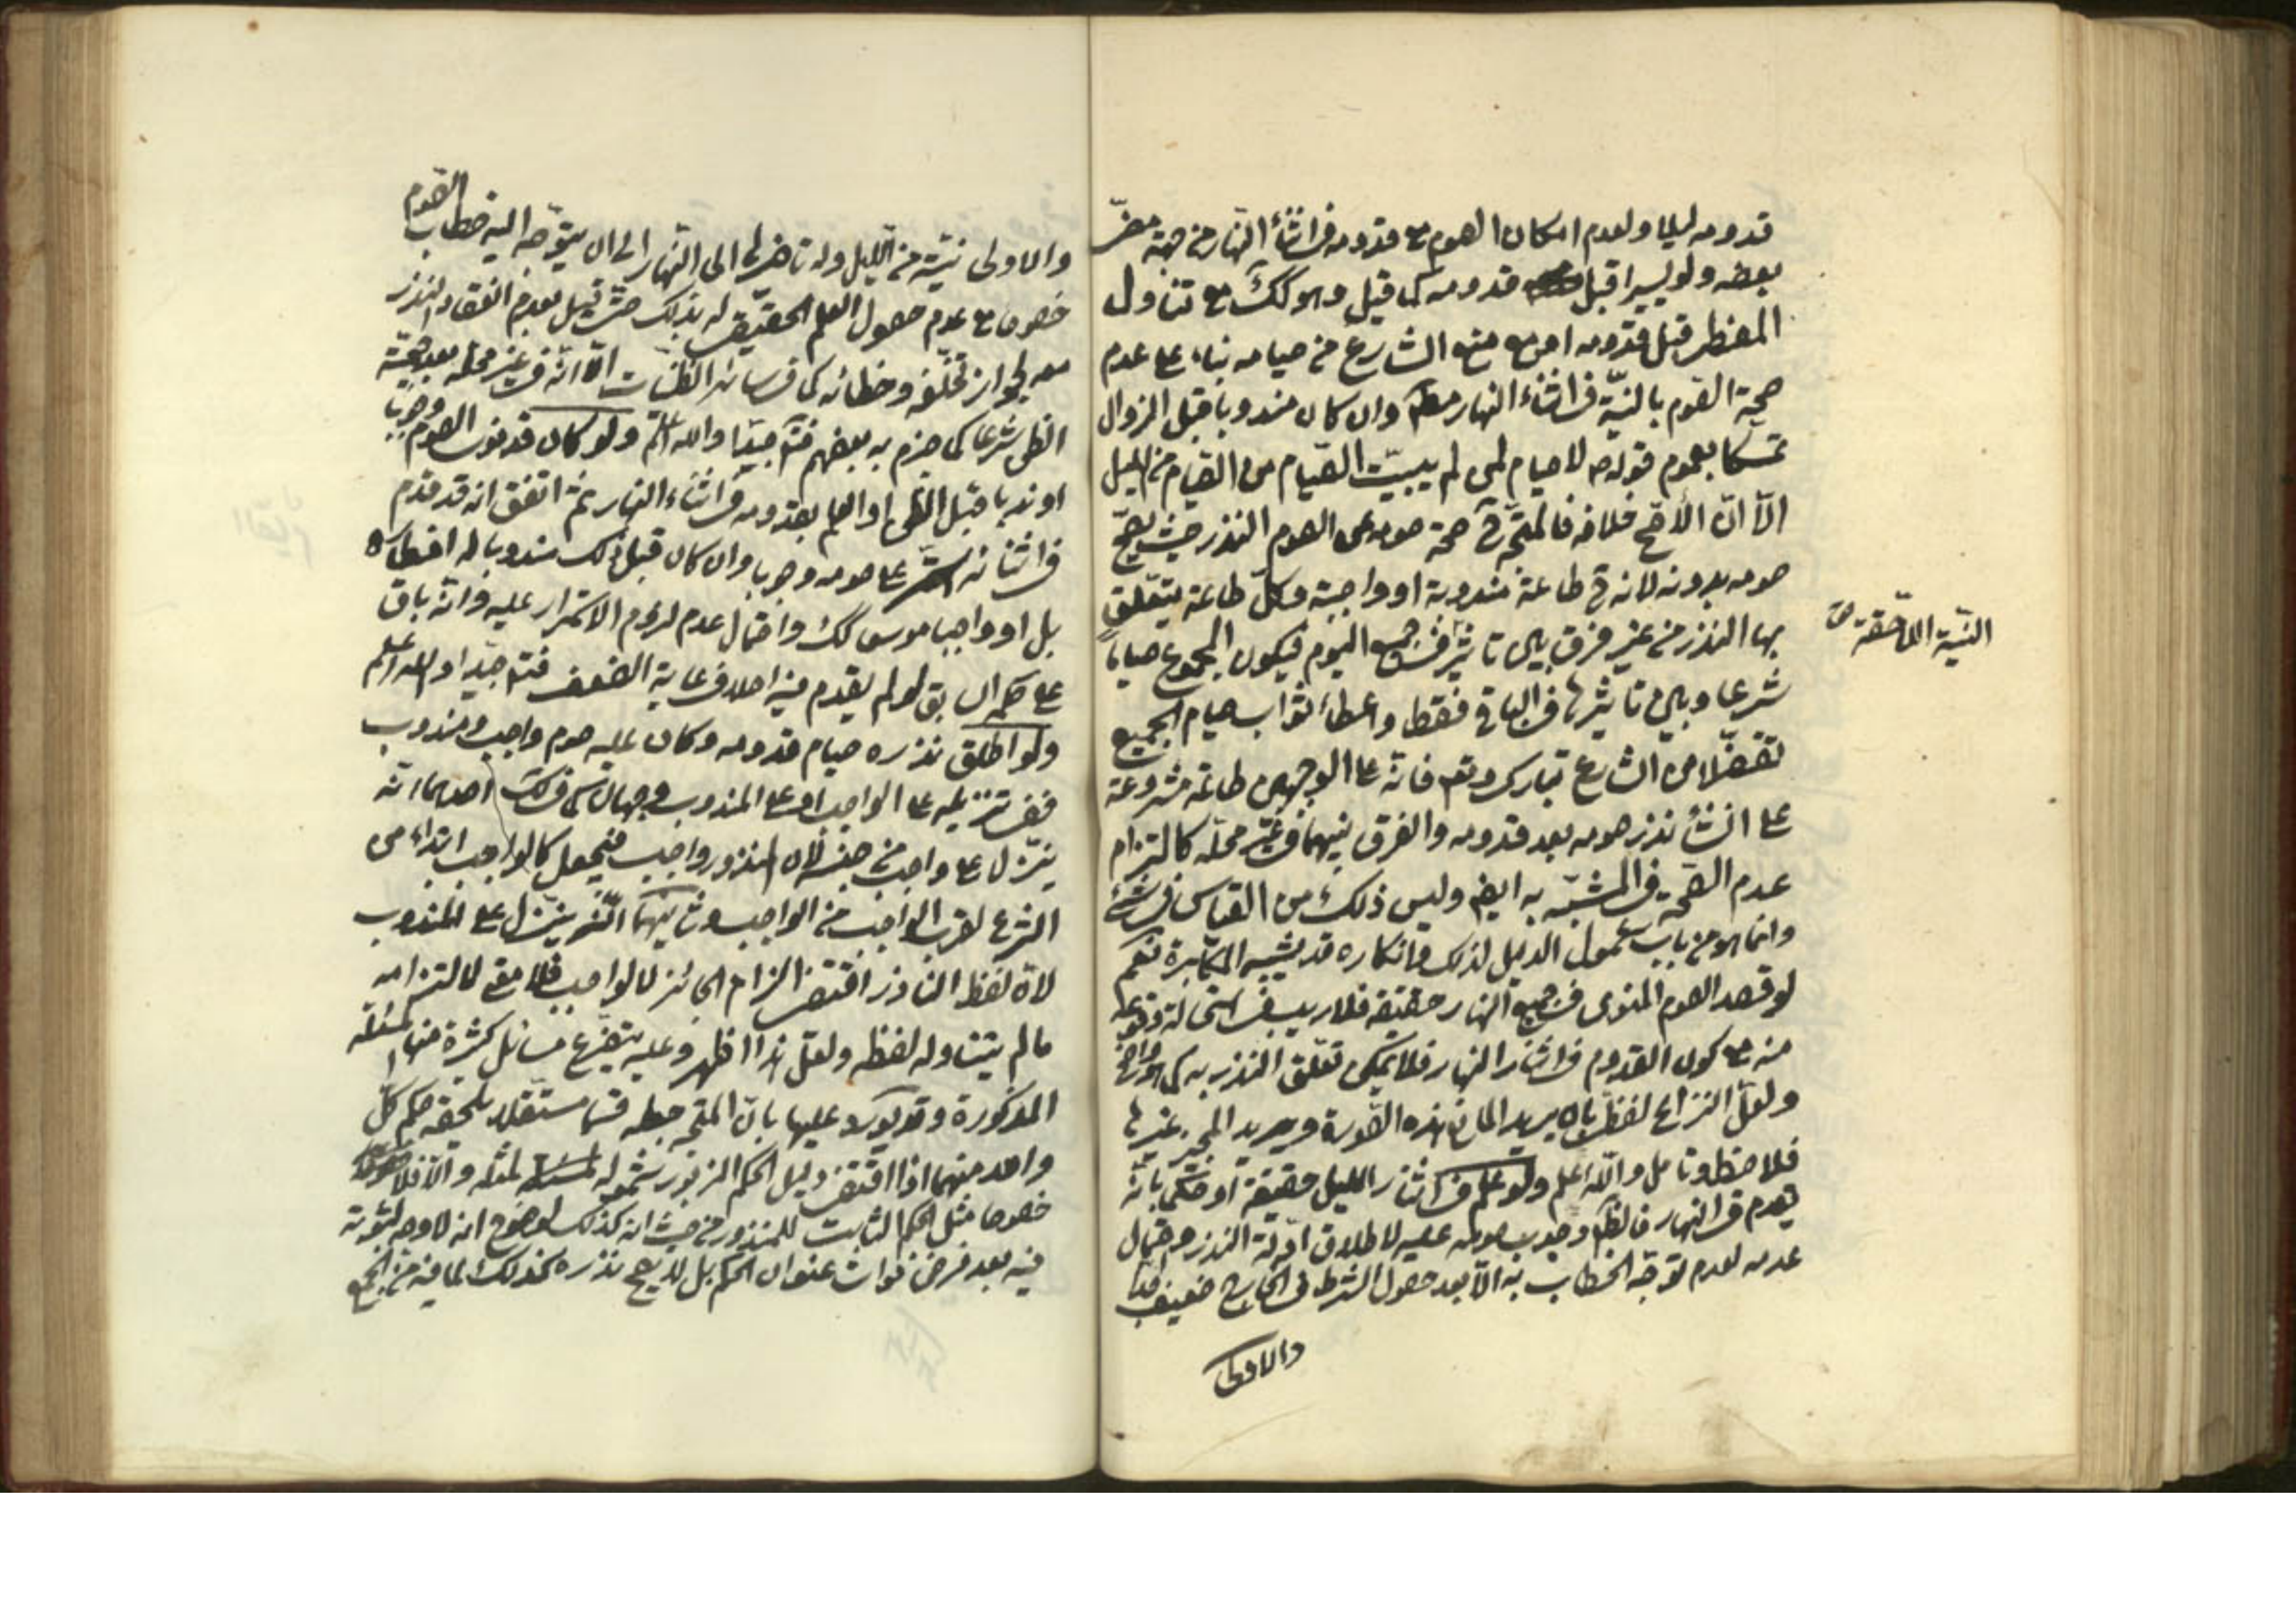 قدومه ليلا ولعدم امكان الصوم مع قدومه في اثناء النهار من جهة مضى
بعضه ولو يسيرا قبل قدومه كما قيل وهو كك مع تناول
المفطر قبل قدومه او مع منع الشارع من صيامه بناء على عدم
صحة الصوم بالنية في اثناء النهار مطم وان كان مندوبا قبل الزوال
تمسكا بعموم قوله ص لا صيام لمن لم يبيت الصيام من الليل
الا ان الأصح خلافه فالمتجه ح صحة صومه عن الصوم النذر حيث يصح
صومه بدونه لانه ح طاعة مندوبة او واجبة وكل طاعة يتعلق
بها النذر من غير فرق بين تاثير في جميع اليوم فيكون المجموع صياما
شرعا وبين تاثيرها في الباقي فقط واعطاء ثواب صيام الجميع
تفضلا من الشارع تبارك وتعم فانه على الوجهين طاعة مشروعة
على انشاء نذر صومه بعد قدومه والفرق بينهما في غير محله كالتزام
عدم الصحة في المشبه به ايضا وليس ذلك من القياس في شئ
وانما هو من باب شمول الدليل لذلك فانكاره قد يشبه المكابرة نعم
لو قصد الصوم المنوى في جميع النهار حقيقة فلا ريب في استحالة وقوعه
منه مع كون القدوم في اثناء النهار فلا يمكن تعلق النذر به كما هو واضح
ولعل النزاع لفظى بان يريد المانع هذه الصورة ويريد المجيز غيرها
فلاحظ وتامل والله اعلم ولو علم في اثناء الليل حقيقة او حكما بانه
يقدم في النهار فالظم وجوب صومه عليه لاطلاق ادلة النذر واحتمال
عدمه لعدم توجه الخطاب به الا بعد حصول الشرط في الخارج ضعيف جدا
والاولى
النية اللاحقة ص
والاولى نيته من الليل وله تاخيرها الى النهار الى ان يتوجه اليه خطاب الصوم
خصوصا مع عدم حصول العلم الحقيقى له بذلك حتى قيل بعدم انعقاد النذر
معه لجواز تخلفه وخطائه كما في سائر الظنيات الا انه في غير محله بعد حجية
الظن شرعا كما جزم به بعضهم فتم جيدا والله اعلم ولو كان قد نوى الصوم وجوبا
او ندبا قبل الظن او العلم بقدومه في اثناء النهار ثم اتفق انه قد قدم
في اثنائه استمر على صومه وجوبا وان كان قبل ذلك مندوبا له افطاره
بل او واجبا موسعا كك واحتمال عدم لزوم الاستمرار عليه وانه باق
على حكم السابق لو لم يقدم فيه احد في غاية الضعف فتم جيدا والله اعلم
ولو اطلق نذره صيام قدومه وكان عليه صوم واجب ومندوب
ففى تنزيله على الواجب او على المندوب وجهان احدهما انه
ينزل على واجب من جنسه لان المنذور واجب فيجعل كالواجب ابتداء من
الشرع لقرب الواجب من الواجب وثانيهما انه ينزل على المندوب
لان لفظ الناذر اقتضى التزام الجائز لا الواجب فلا معنى لالتزامه
ما لم يتناوله لفظه ولعل هذا اظهر وعليه يتفرع مسائل كثيرة منها المسئلة
المذكورة وقد يورد عليها بان المتجه جعله قسما مستقلا يلحقه حكم كل
واحد منهما اذا اقتضى دليل الحكم المزبور شموله لمثله والا فلا
خصوصا مثل الحكم الثابت للمنذور من حيث انه كذلك لوضوح انه لا وجه لثبوته
فيه بعد فرض فوات عنوان الحكم بل لا يصح نذره كذلك لما فيه من الجمع